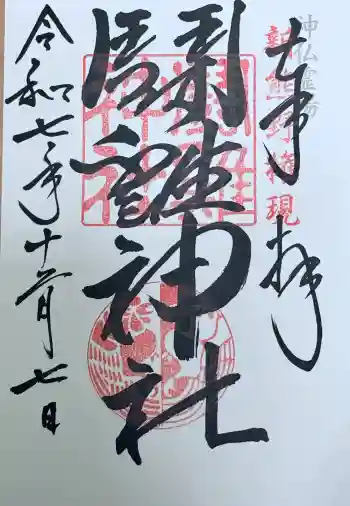 神仏霊場
新熊野権現
奉拝
鬪雞神社
令和七年十一月七日